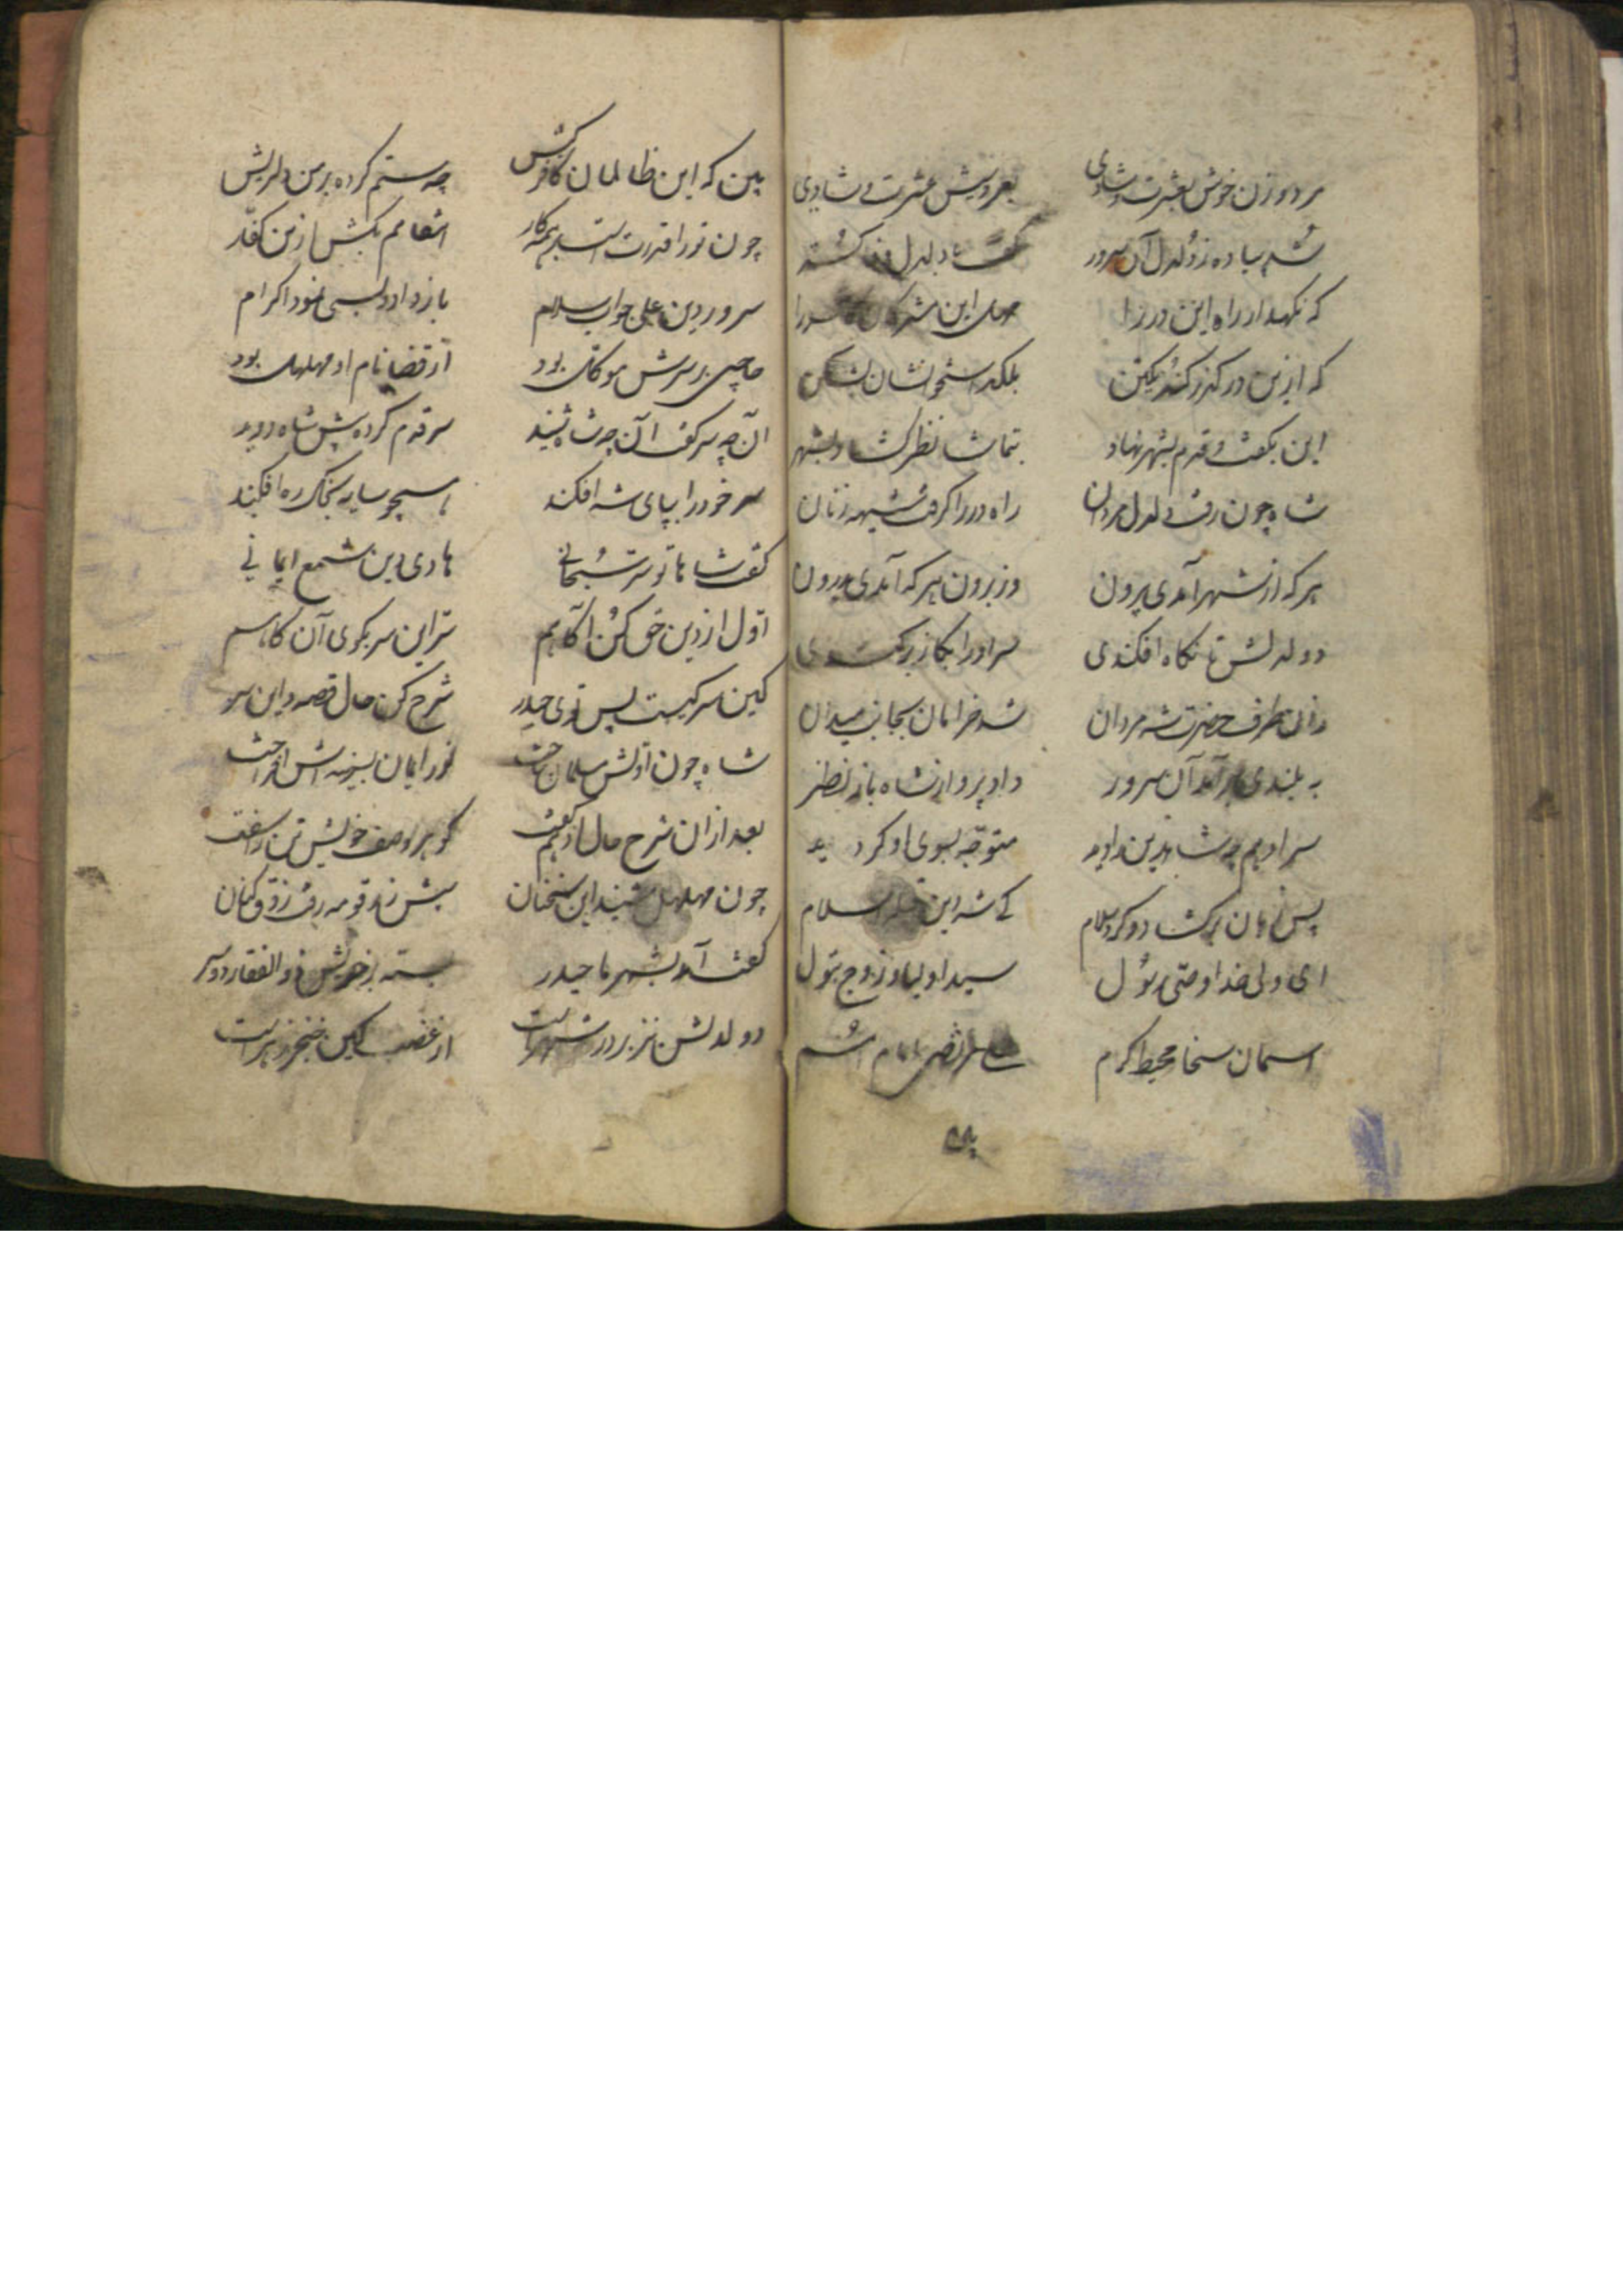 مرد و زن خوش بعشرت و شادی بعروسیش عشرت و شادی
شد پیاده ز دلدل آن سرور گفت با دلدل
که نگهدار راه این در را مهل این مشرکان
که ازین در گذر کند یکتن بلکد استخوانشان بشکن
این بگفت و قدم بشهر نهاد بتماشا نظر گشاد بشهر
شاه چون رفت دلدل مردان راه در را گرفت شیهه زنان
هر که از شهر آمدی بیرون وز برون هر که آمدی بدرون
دو لدلش تا نگاه افکندی سر او را بگاز برکندی
زان طرف حضرت شه مردان شد خرامان بجانب میدان
به بلندی بر آمد آن سرور داد پرواز شاه باز نظر
سر او هم چو شاه دین را دید متوجه بسوی او گردید
پس زبان برگشاد و کرد سلام کی شه دین اسلام
ای ولی خدا وصی رسول سید اولیا و زوج بتول
اسمان سخا محیط کرم علی مرتضی امام امم
ببین که این ظالمان کافر کیش چه ستم کرده بر من دلریش
چون تو را قدرتست بر همه کار انتقامم بکش ازین کفار
سرور دین علی جواب سلام باز داد و بسی نمود اکرام
حاجبی بر سرش موکل بود از قضا نام او مهلهل بود
آن چه سر گفت آن چه شاه شنید سر قدم کرده پیش شاه دوید
سر خود را بپای شه افکند همچو سایه بخاک ره افکند
گفت شاها تو سر سبحانی هادی دین شمع ایمانی
اول از دین حق کن اگاهم سر این سر بگوی آن گاهم
کین سر کیست پس توی حیدر شرح کن حال قصه و این سر
شاه چون اولش مسلمان ساخت نور ایمان بسینه اش انداخت
بعد از ان شرح حال او هم گفت گوهر وصف خویشتن را سفت
چون مهلهل شنید این سخنان پیش زندقومه رفت زوق کنان
گفت آمد بشهر ما حیدر بسته بر خویش ذوالفقار دو سر
دو لدلش نیز بر در شهرست از غضب کین خنجر زهرست